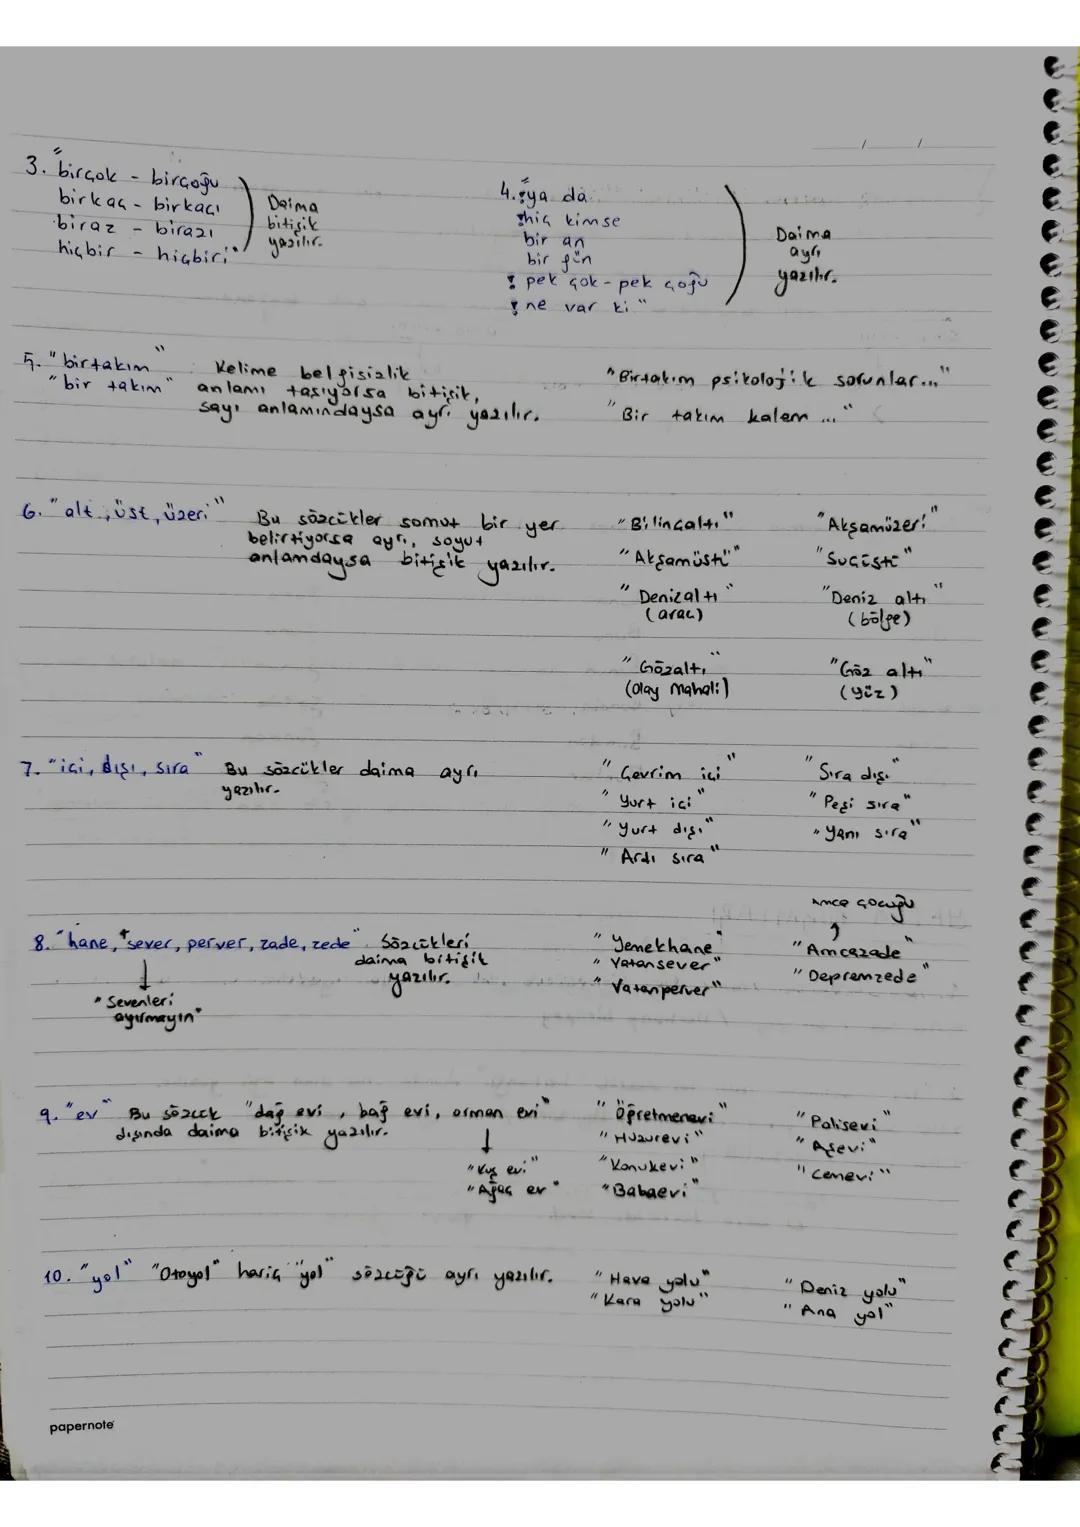 3. "birçok - birçoğu
birkaç - birkaçı
biraz - birazı
hiçbir - hiçbiri"
Daima
bitişik
yazılır.
4. "ya da
hiç kimse
bir an
bir gün
! pek çok - pek çoğu
! ne var ki"
Daima
ayrı
yazılır.
5. "birtakım"
"bir takım"
Kelime belgisizlik
anlamı taşıyorsa bitişik,
sayı anlamındaysa ayrı yazılır.
"Birtakım psikolojik sorunlar..."
"Bir takım kalem ..."
6. "alt, üst, üzeri"
Bu sözcükler somut bir yer
belirtiyorsa ayrı, soyut
anlamdaysa bitişik yazılır.
"Bilinçaltı"
"Akşamüstü"
"Denizaltı"
(araç)
"Gözaltı"
(Olay Mahali)
"Akşamüzeri"
"Suçüstü"
"Deniz altı"
(bölge)
"Göz altı"
(yüz)
7. "içi, dışı, sıra"
Bu sözcükler daima ayrı
yazılır.
"Çevrim içi"
"Yurt içi"
"Yurt dışı"
"Ardı sıra"
"Sıra dışı"
"Peşi sıra"
"Yanı sıra"
8. "hane, sever, perver, zade, zede" Sözcükleri
daima bitişik
yazılır.
"Sevenleri
ayırmayın"
"Yemekhane"
"Vatansever"
"Vatanperver"
Amca çocuğu
"Amcazade"
"Depremzede"
9. "ev" Bu sözcük "dağ evi, bağ evi, orman evi"
dışında daima bitişik yazılır.
"Kuş evi"
"Ağaç ev"
"Öğretmenevi"
"Huzurevi"
"Konukevi"
"Babaevi"
"Polisevi"
"Aşevi"
"Cemevi"
10. "yol" "Otoyol" hariç "yol" sözcüğü ayrı yazılır.
"Hava yolu"
"Kara yolu"
"Deniz yolu"
"Ana yol"
papernote